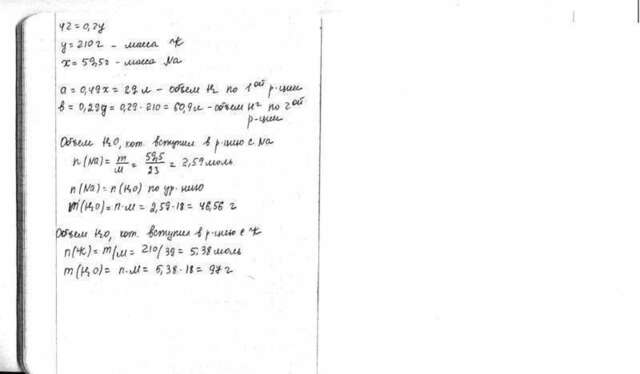 42 = 0,2y
y = 210 г - масса K
x = 59,5 г - масса Na
a = 0,49x = 29 л - объем H₂ по 1ой р-ции
в = 0,29y = 0,29·210 = 60,9 л - объем H² по 2ой
р-ции
Объем H₂O, кот. вступил в р-цию с Na
n(Na) = m/M = 59,5/23 = 2,59 моль
n(Na) = n(H₂O) по ур-нию
m(H₂O) = n·M = 2,59·18 = 46,56 г
Объем H₂O, кот. вступил в р-цию с K
n(K) = m/M = 210/39 = 5,38 моль
m(H₂O) = n·M = 5,38·18 = 97 г